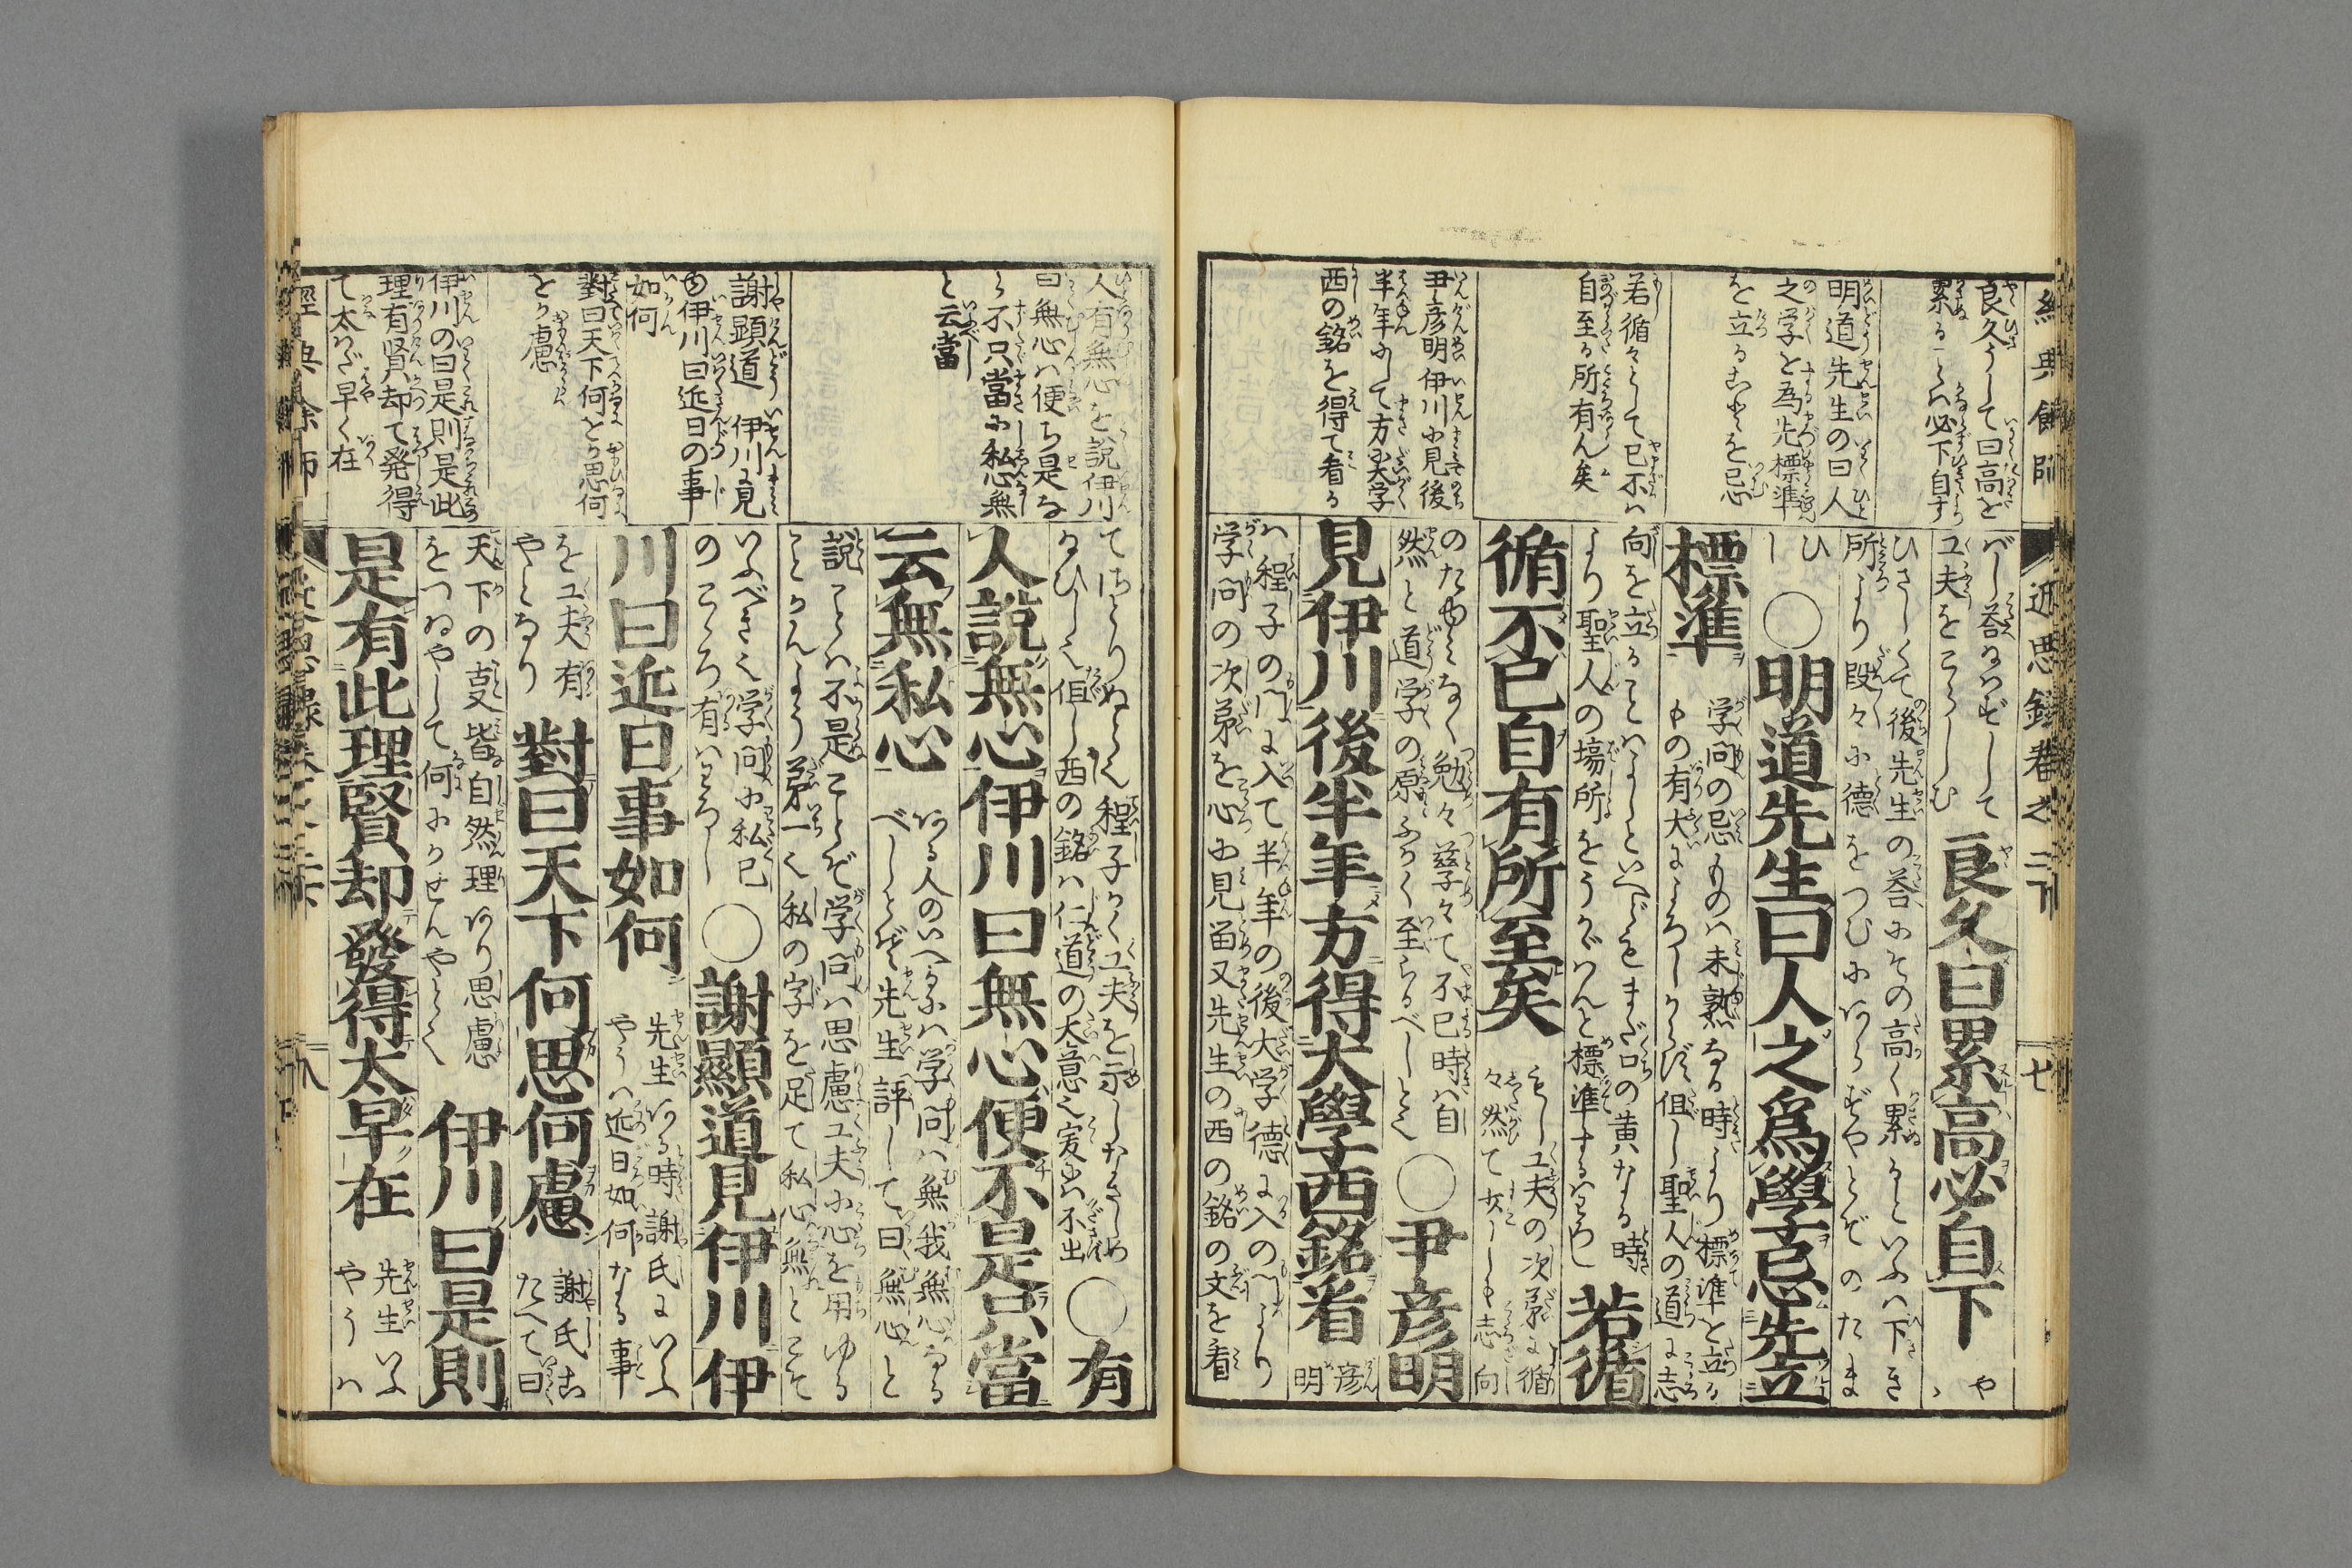 經典餘師
近思錄卷之二下
七
良久うして曰高を
累るゝは必下自す
明道先生の曰人
之学を為先標準
を立ることを忌
若循々として已不ハ
自至る所有ん矣
尹彦明伊川に見後
半年にして方に大学
西の銘を得て看る
べし答なつずして
工夫をこらしむ
良久曰累高必自下
や
ひさしくて後先生の答にその高く累るといふハ下き
所より段々に德をつむにあるぞやとぞのたま
ひし
○明道先生曰人之爲學忌先立
標準
学問の忌ものハ未熟なる時より標準と立る
中の有大によろしからず但し聖人の道に志
向を立ることハよしといへどもまだ口の黄なる時
より聖人の場所をうかゞハんと標準するハわろし
若循
循不已自有所至矣
もし工夫の次第に循
々然て少しも志向
のたゆみなく勉々孳々て不已時ハ自
然と道学の原ふかく至らるべしとぞ
○尹彦明
見伊川後半年方得大學西銘看
彦明
ハ程子の門に入て半年の後大学德に入の門より
学問の次第を心に見畱又先生の西の銘の文を看
人有無心を説伊川
曰無心ハ便ち是な
らず不只當に私心無
と云當
謝顯道伊川に見
ゆ伊川曰近日の事
如何
對曰天下何をか思何
をか慮
伊川の曰是則是此
理有賢却て発得
て太だ早く在
てさとりぬらん程子かく工夫を示しなさしめ
なひしく但し西の銘ハ仁道の大意也爰ハ不出
○有
人說無心伊川曰無心便不是只當
云無私心
ある人のいへるにハ学問ハ無我無心なる
べしとぞ先生評して曰無心と
說ことハ不是ことぞ学問ハ思慮工夫に心を用ゆる
ことかんよう第一也私の字を足て私心無とこそ
いふべきく学問に私已
のこゝろ有ハわろし
○謝顯道見伊川伊
川曰近日事如何
先生ある時謝氏にいふ
やうハ近日如何なる事
を工夫有
やとなり
對曰天下何思何慮
謝氏こ
たへて曰
天下の㕝皆自然理あり思慮
をつゐやして何にかせんやとく
伊川曰是則
是有此理賢却發得太早在
先生いふ
やうハ
八